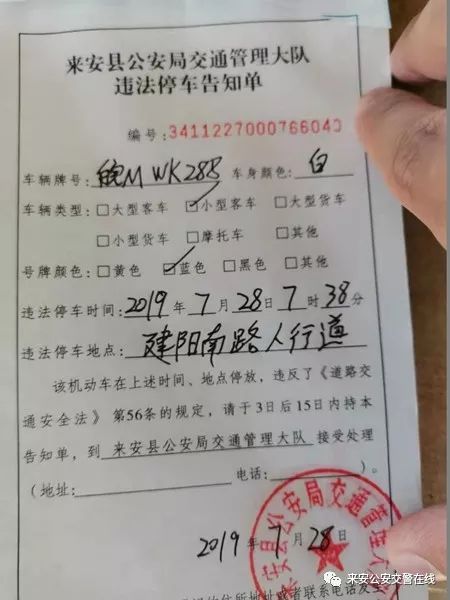 来安县公安局交通管理大队
违法停车告知单
编号:3411227000766040
车辆牌号: 皖M WK288 车身颜色: 白
车辆类型: □大型客车 ☑小型客车 □大型货车
□小型货车 □摩托车 □其他
号牌颜色: □黄色 ☑蓝色 □黑色 □其他
违法停车时间: 2019 年 7 月 28 日 7 时 38 分
违法停车地点: 建阳南路人行道
该机动车在上述时间、地点停放,违反了《道路交
通安全法》第56条的规定,请于3日后15日内持本
告知单,到 来安县公安局交通管理大队 接受处理
(地址: 电话: )。
来安县公安局交通管理大队
2019 年 7 月 28 日
住所地址或者联系电话发生
来安公安交警在线